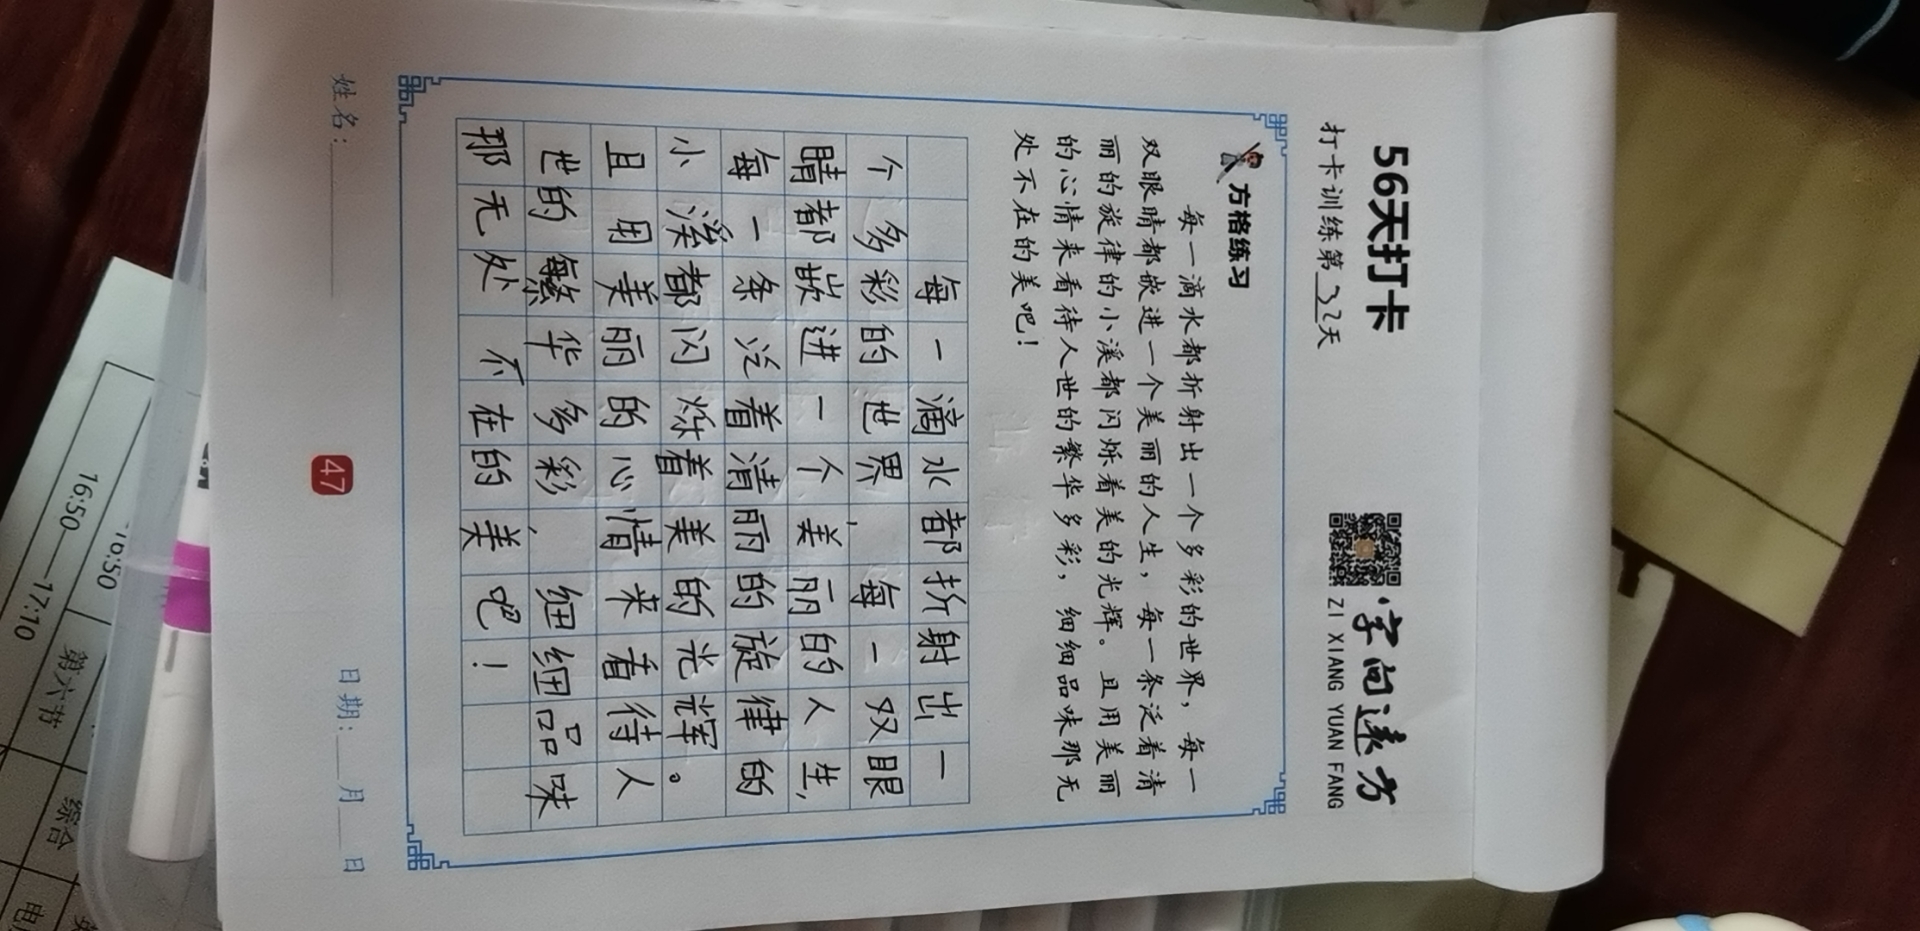 56天打卡
打卡训练第32天
字向远方
ZI XIANG YUAN FANG
方格练习
每一滴水都折射出一个多彩的世界，每一
双眼睛都嵌进一个美丽的人生，每一条泛着清
丽的旋律的小溪都闪烁着美的光辉。且用美丽
的心情来看待人世的繁华多彩，细细品味那无
处不在的美吧！
每一滴水都折射出一
个多彩的世界，每一双眼
睛都嵌进一个美丽的人生，
每一条泛着清丽的旋律的
小溪都闪烁着美的光辉。
且用美丽的心情来看待人
世的繁华多彩，细细品味
那无处不在的美吧！
姓名：
日期：
月
日
47
16:50
16:50—17:10
第六节
综合